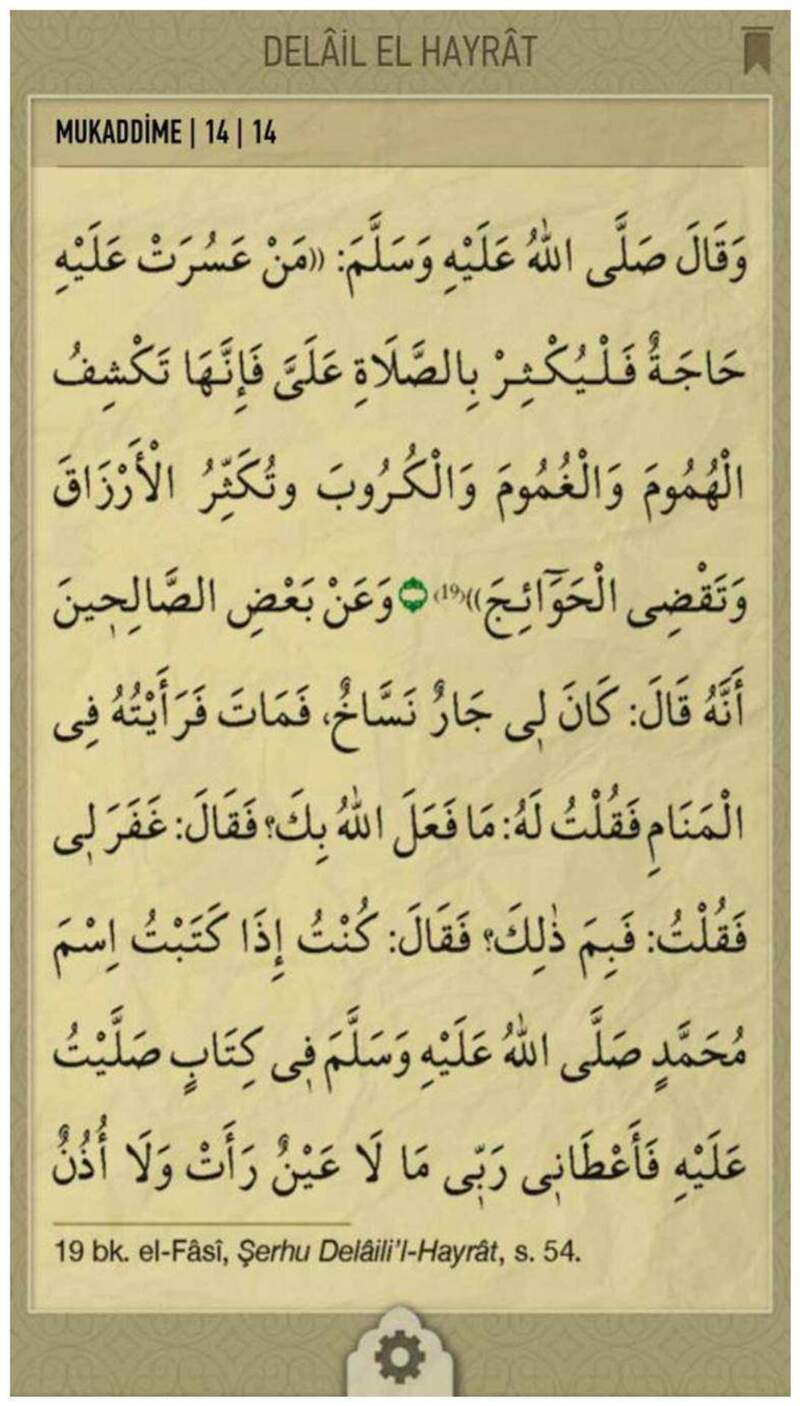 DELÂİL EL HAYRÂT
MUKADDİME | 14 | 14
وَقَالَ صَلَّى اللهُ عَلَيْهِ وَسَلَّمَ: ((مَنْ عَسُرَتْ عَلَيْهِ
حَاجَةٌ فَلْيُكْثِرْ بِالصَّلَاةِ عَلَىَّ فَإِنَّهَا تَكْشِفُ
الْهُمُومَ وَالْغُمُومَ وَالْكُرُوبَ وتُكَثِّرُ الْأَرْزَاقَ
وَتَقْضِى الْحَوَٓائِجَ))(19) وَعَنْ بَعْضِ الصَّالِحِينَ
أَنَّهُ قَالَ: كَانَ لِى جَارٌ نَسَّاخٌ، فَمَاتَ فَرَأَيْتُهُ فِى
الْمَنَامِ فَقُلْتُ لَهُ: مَا فَعَلَ اللهُ بِكَ؟ فَقَالَ: غَفَرَ لِى
فَقُلْتُ: فَبِمَ ذٰلِكَ؟ فَقَالَ: كُنْتُ إِذَا كَتَبْتُ اِسْمَ
مُحَمَّدٍ صَلَّى اللهُ عَلَيْهِ وَسَلَّمَ فِى كِتَابٍ صَلَّيْتُ
عَلَيْهِ فَأَعْطَانِى رَبِّى مَا لَا عَيْنٌ رَأَتْ وَلَا أُذُنٌ
19 bk. el-Fâsî, Şerhu Delâili'l-Hayrât, s. 54.